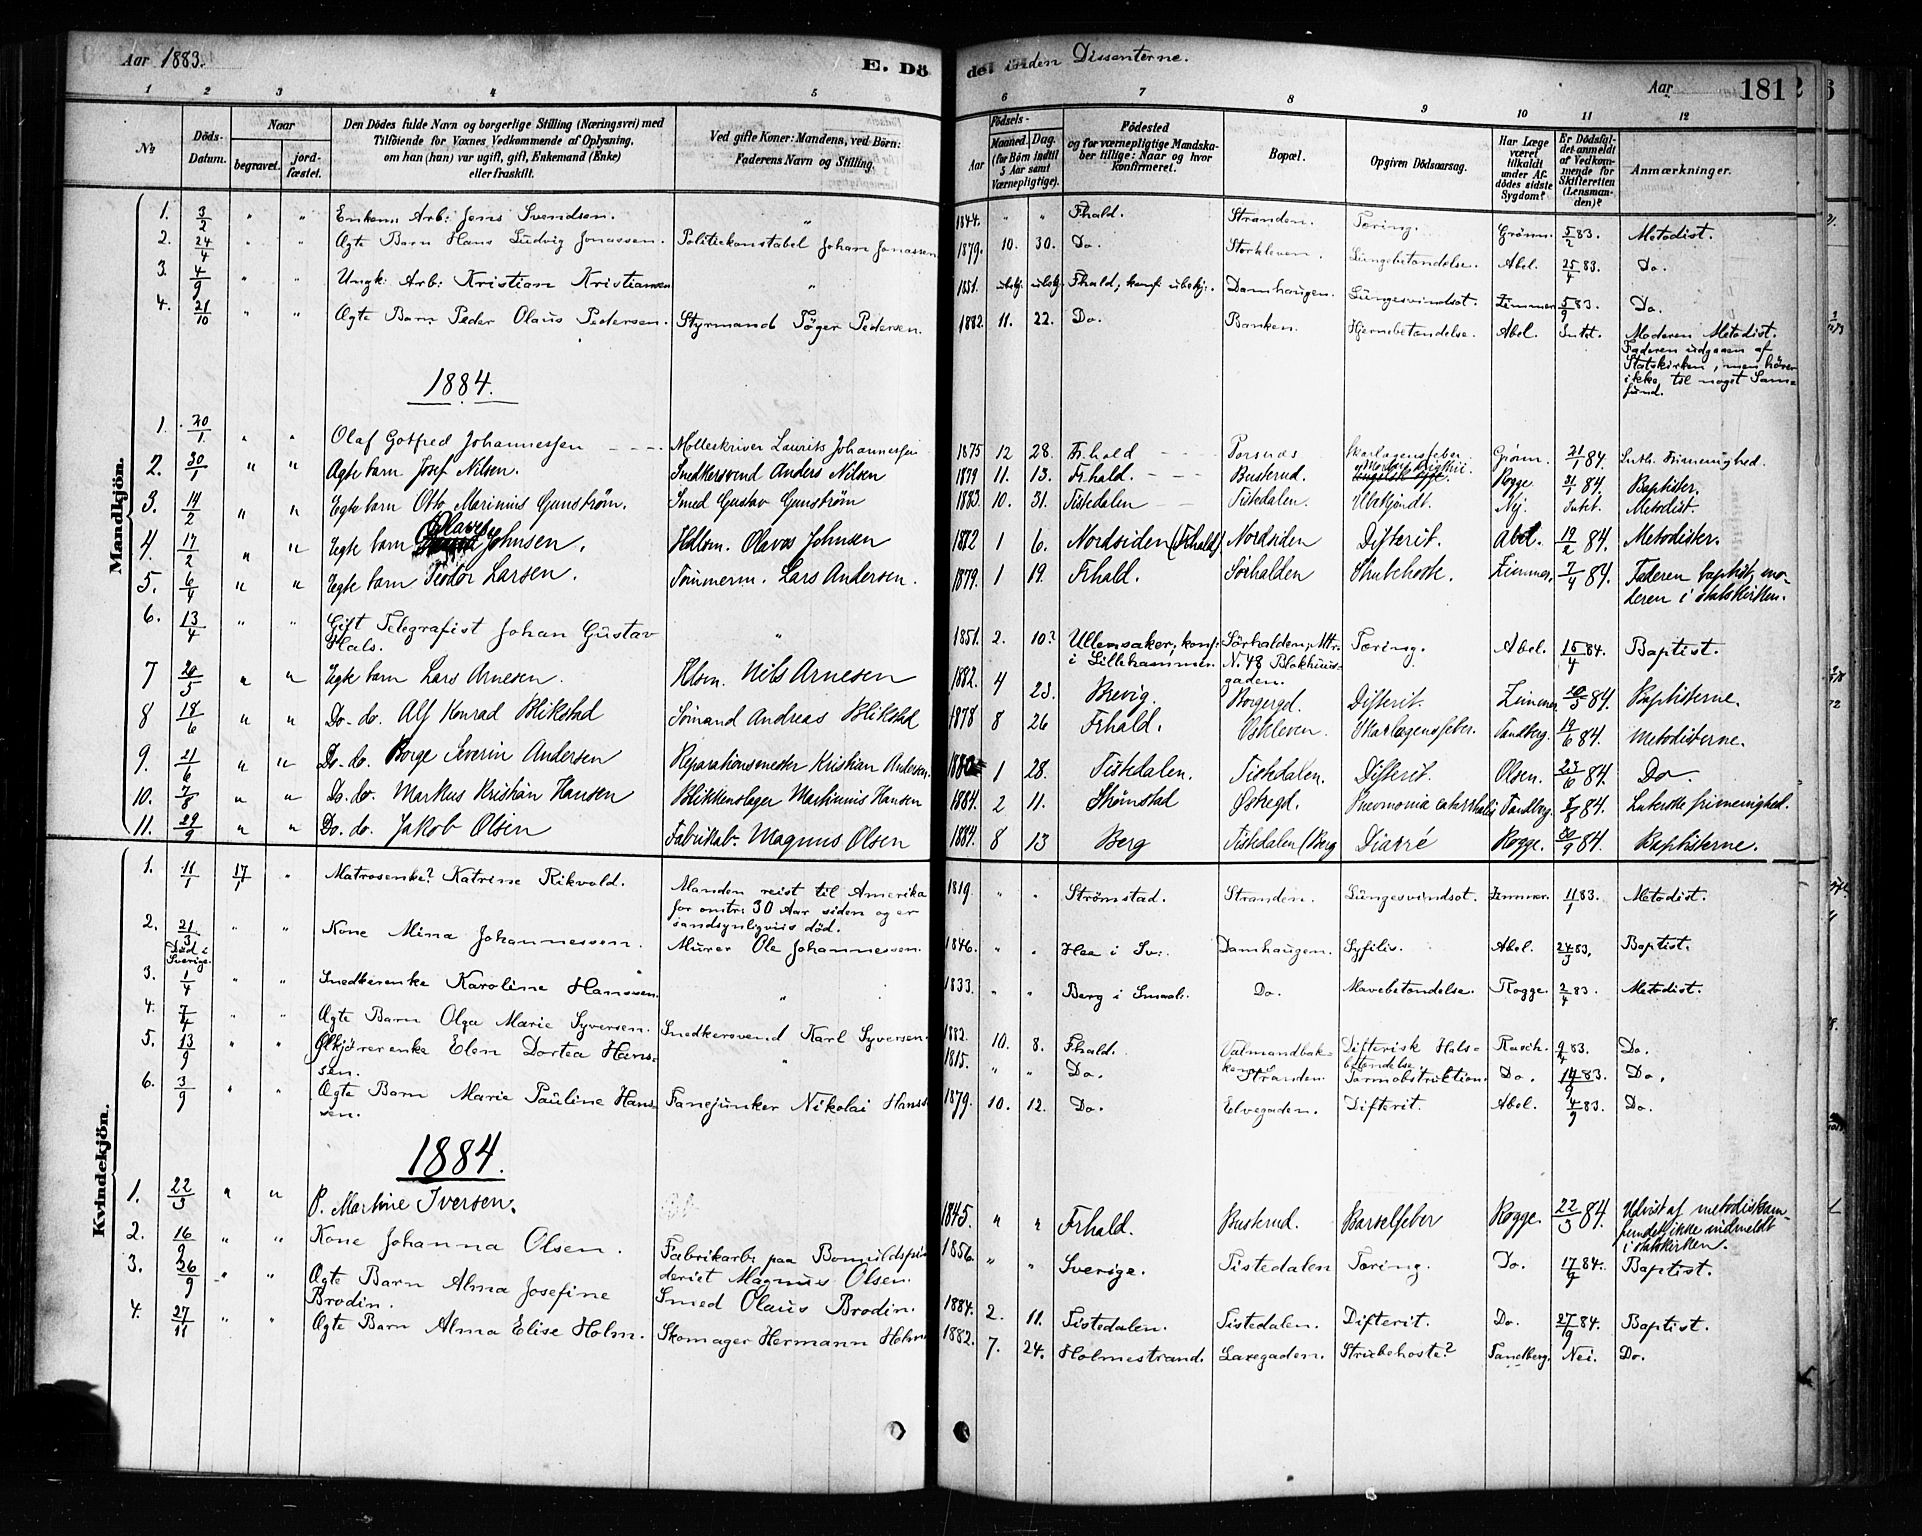 Aar 1883.
E. Dö
døde inden Dissenterne.
Aar
181
1 2 3 4 5 6 7 8 9 10 11 12
No
Döds-Datum.
Naar
begravet.
jordfæstet.
Den Dödes fulde Navn og borgerlige Stilling (Næringsvei) med
Tilföiende for Voxnes Vedkommende af Oplysning,
om han (hun) var ugift, gift, Enkemand (Enke)
eller fraskilt.
Ved gifte Koner: Mandens, ved Börn:
Faderens Navn og Stilling.
Födsels-
Aar
Maaned. Dag.
(for Börn indtil
5 Aar samt
Værnepligtige).
Födested
og for værnepligtige Mandska-
ber tillige: Naar og hvor
konfirmeret.
Bopæl.
Opgiven Dödsaarsag.
Har Læge
været
tilkaldt
under Af-
dödes sidste
Sygdom?
Er Dödsfal-
det anmeldt
af Vedkom-
mende for
Skifteretten
(Lensman-
den)?
Anmærkninger.
Mandkjön.
1. 3/2 " " Enkem. Arb: Jens Svendsen. " 1844. " " Fhald. Stranden. Tæring. Grønn. 5/2 83. Metodist.
2. 24/4 " " Ægte Barn Hans Ludvig Jonassen. Politiekonstabel Johan Jonassen 1879. 10. 30. Do. Storkleven. Lungebetændelse. Abel. 25/4 83. Do.
3. 4/9 " " Ungk. Arb: Kristian Kristiansen " 1851. ubekj. ubekj. Fhald, konf: ubekj:. Damhaugen. Lungesvindsot. Zimmer 5/9 83. Do.
4. 21/10 " " Ægte Barn Peder Olaus Pedersen. Styrmand Töger Pedersen. 1882. 11. 22. Do. Banken. Hjernebetændelse. Abel. Intet. Moderen Metodist.
Faderen udgaaen af
Statskirken, men hörer
ikke til noget Sam-
fund.
1884.
1. 20/1 " " Olaf Gotfred Johannessen Mølleskriver Laurits Johannessen 1875 12 28. Fr.hald Porsnæs Skarlagensfeber Grønn. 21/1 84. Luth. Frimenighed.
2. 30/1 " " Ægte barn Josef Nilsen. Snedkersvend Anders Nilsen 1879 11. 13. Fr.hald. Buskrud. Rogge 31/1 84. Baptister.
3. 14/2 " " Egte barn Otto Marinius Gunström. Smed Gustav Gunström 1883 10. 31. Tistedalen Tistedalen. Ubekjendt. Nej. Intet. Metodist.
4. 17/2 " " Egte barn Olaves Johnsen. Hdlsm. Olaves Johnsen 1882 1 6. Nordsiden (Frhald) Nordsiden Difterit. Abel. 19/2 84. Metodister.
5. 6/4 " " Egte barn Teodor Larsen. Tömmerm. Lars Andersen. 1879. 1 19. Frhald. Sørhalden Strubehoste. Zimmer. 7/4 84. Faderen baptist, mo-
deren i statskirken.
6. 13/4 " " Gift Telegrafist Johan Gustav
Hals. " 1851. 2. 10? Ullensaker, konf:
i Lillehammer. Sörhalden, Mtr.
N. 48 Blokhuus-
gaden. Tæring. Abel. 15/4 84. Baptist.
7 20/5 " " Egte barn Lars Arnesen. Hdlsm. Nils Arnesen 1882. 4 23. Brevig. Borgergd. Difterit. Zimmer 20/5 84. Baptisterne.
8 18/6 " " Do. do. Alf Konrad Blikstad Sømand Andreas Blikstad 1878 8 26 Frhald. Oskleven. Skarlagensfeber. Tandberg. 19/6 84. Metodisterne.
9. 21/6 " " Do. do. Borge Severin Andersen Reparationsmester Kristian Andersen. 1882 1 28. Tistedalen. Tistedalen. Difterit. Olsen. 23/6 84. Do.
10. 7/8 " " Do. do. Markus Kristian Hansen Blikkenslager Mathinius Hansen 1884. 2 11. Strømstad Østregd. Pneumonia catarrhalis Tandberg. 8/8 84. Luterske frimenighed.
11. 29/9 " " Do. do. Jakob Olsen Fabrikab. Magnus Olsen 1884. 8 13 Berg Tistedalen (Berg Diarré Rogge. 30/9 84. Baptisterne.
Kvindekjön.
1. 11/1 17/1 " Matrosenke? Katrine Rikvold. Manden reist til Amerika
for omtr: 30 Aar siden og er
sandsynligviis död. 1819. " " Strømstad. Stranden. Lungesvindsot. Zimmer. 11/1 83. Metodist.
2. 21/3 Död i
Sverige. " " Kone Mina Johannessen. Murer Ole Johannessen. 1846. " " Hee i Sv:. Damhaugen. Syfilis. Abel. 24/3 83. Baptist.
3. 1/4 " " Snedkerenke Karoline Hanssen. " 1833. " " Berg i Smaal:. Do. Mavebetændelse. Rogge. 2/4 83. Metodist.
4. 7/4 " " Ægte Barn Olga Marie Syversen. Snedkersvend Karl Syversen. 1882. 10. 8. Fhald. Valmandbak-
ken. Difterisk Hals-
betændelse. Rasch. 9/4 83. Do.
5. 13/9 " " Ølkjörerenke Elen Dortea Hans-
sen. " 1815. " " Do. Stranden. Tarmobstruktion. Do. 14/9 83. Do.
6. 3/9 " " Ægte Barn Marie Pauline Hans-
sen. Fanejunker Nikolai Hanss 1879. 10. 12. Do. Elvegaden. Difterit. Abel. 4/9 83. Do.
1884.
1. 22/3 " " P. Martine Iversen. 1845. " " Frhald. Buskrud. Barselfeber Rogge. 22/3 84. Udvist af metodistsam-
fundet, ikke indmeldt
i statskirken.
2. 16/9 " " Kone Johanna Olsen. Fabrikarb: paa Bomuldspin-
deriet Magnus Olsen. 1856. " " Sverige. Tistedalen Tæring. Do. 17/9 84. Baptist.
3. 26/9 " " Ægte Barn Alma Josefine
Brodin. Smed Olaus Brodin. 1884. 2. 11. Tistedalen. Tistedalen. Difterit. Do. 27/9 84. Baptist.
4. 27/11 " " Ægte Barn Alma Elise Holm. Skomager Hermann Holm 1882. 7. 24. Holmestrand. Laxegaden. Strubehoste? Tandberg. Nei. Do.